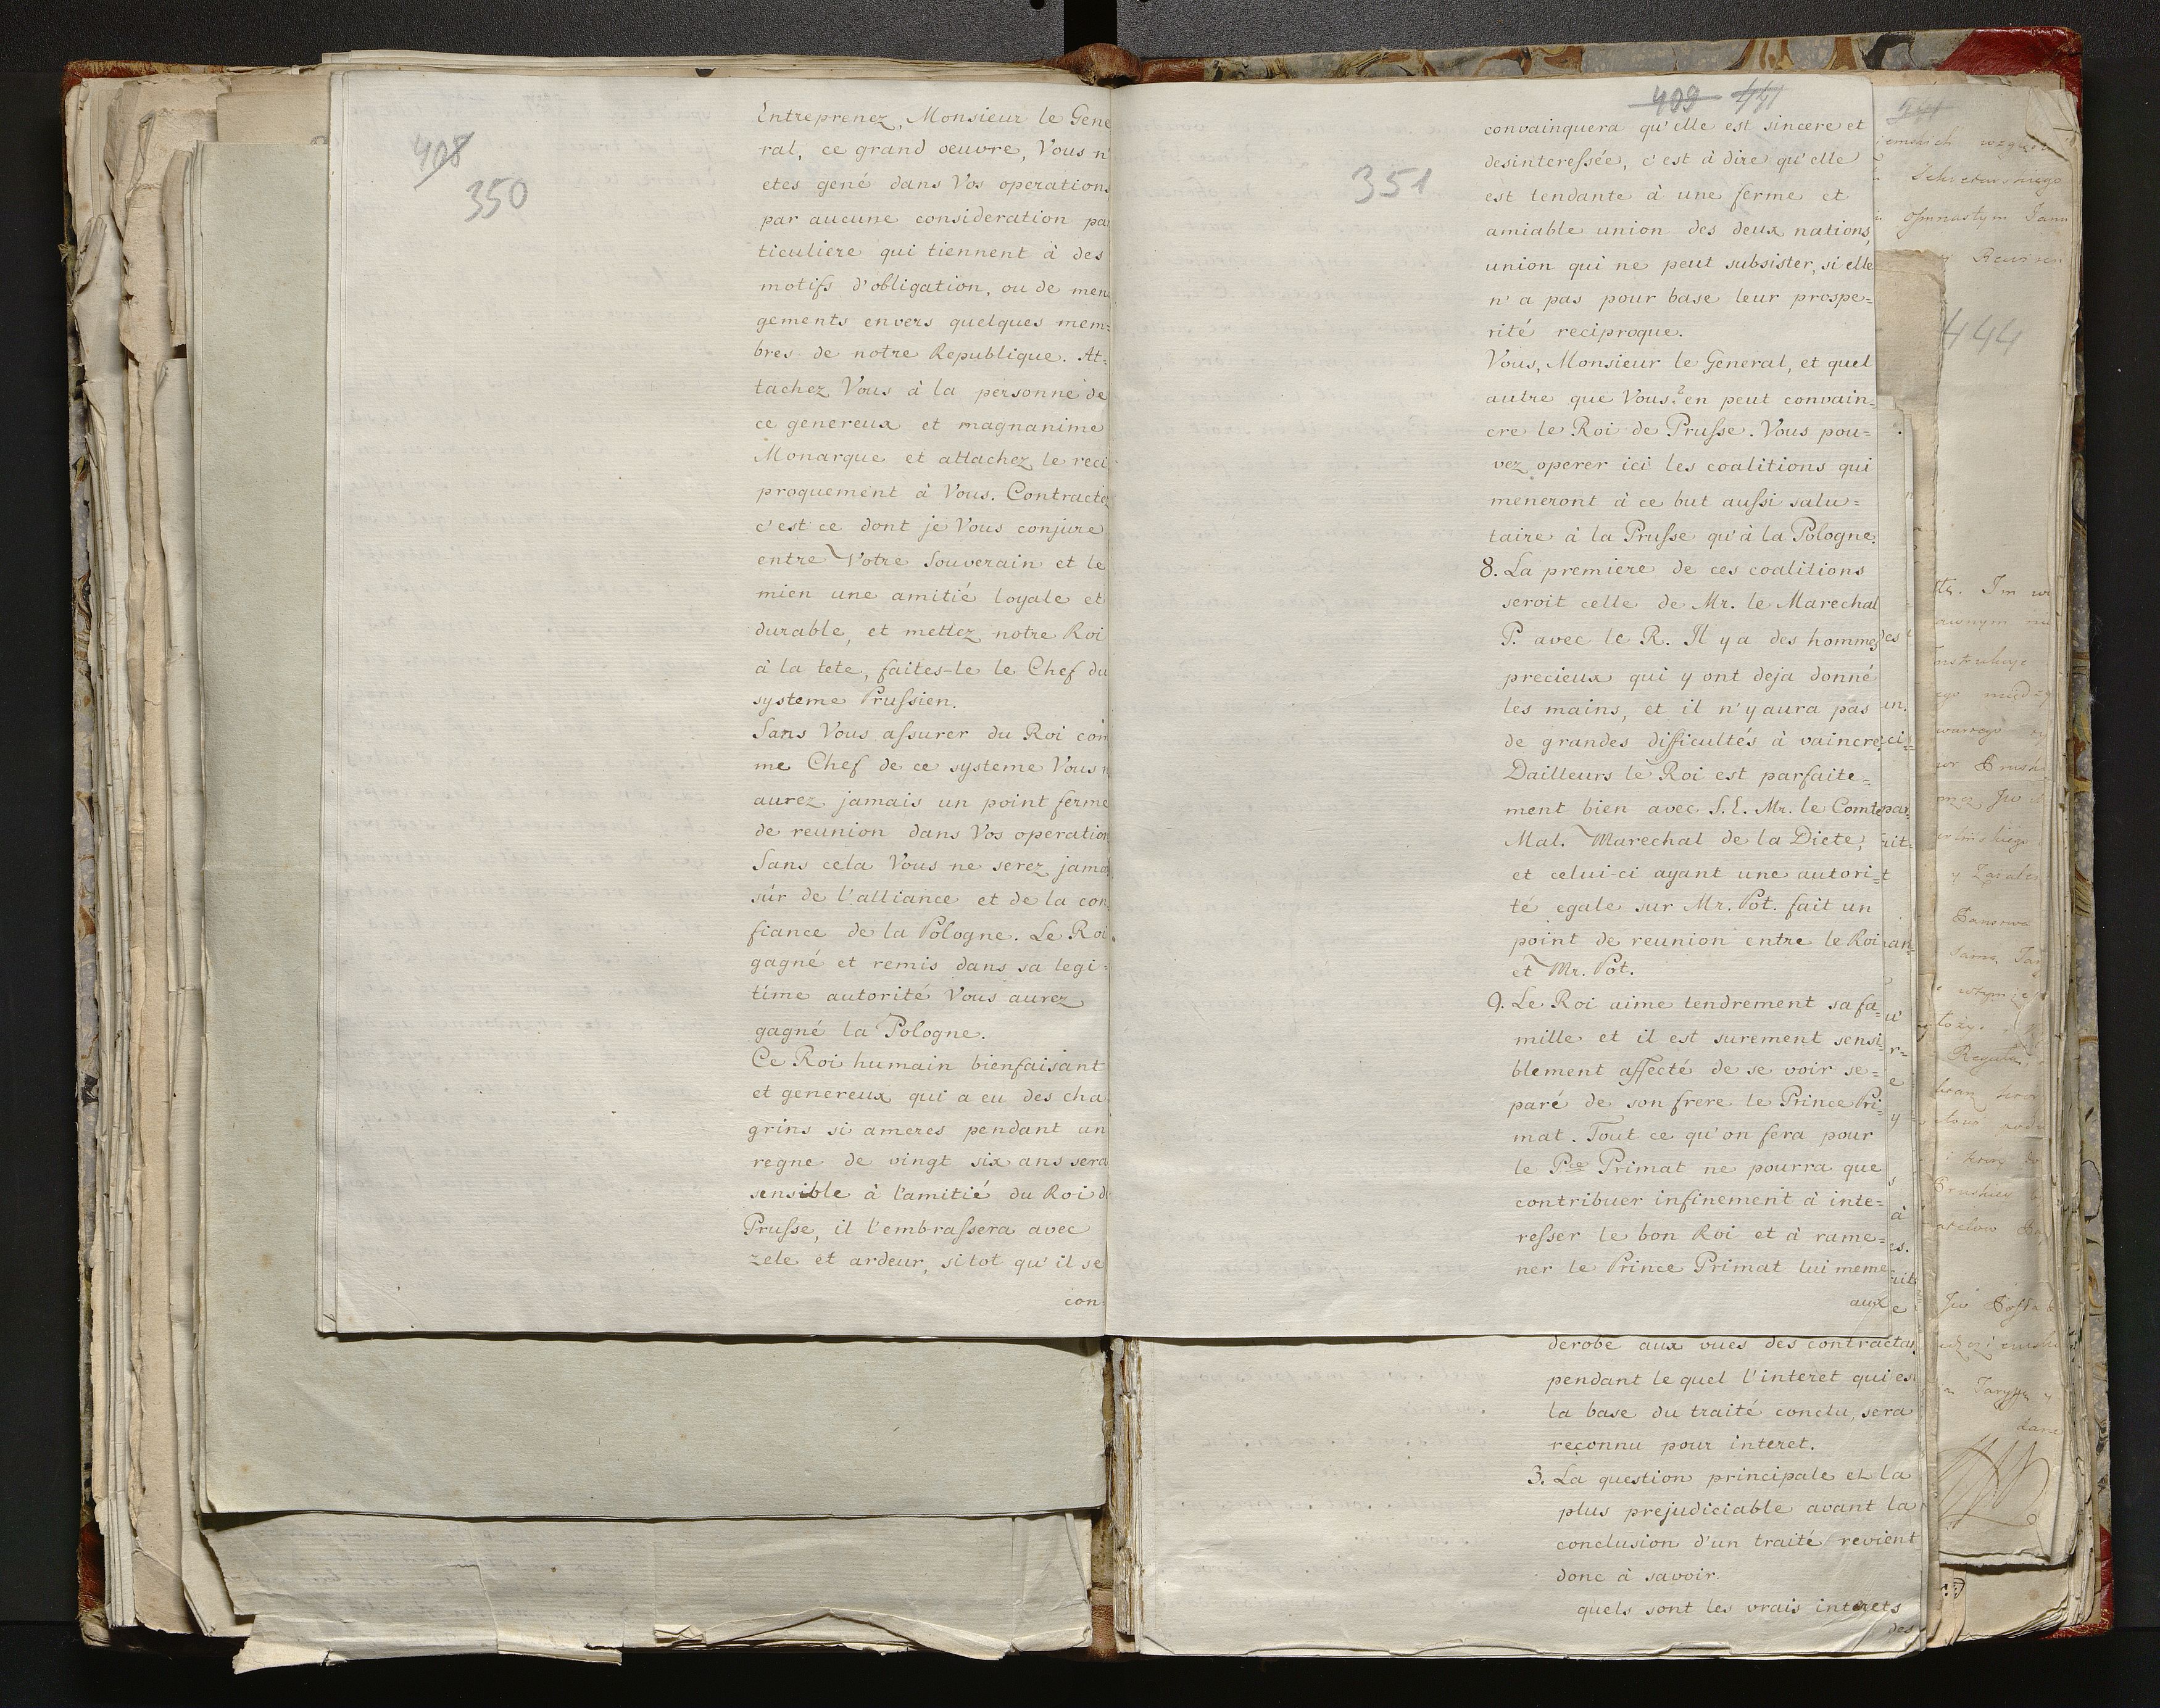 408
350
Entreprenez, Monsieur le Gene
ral, ce grand oeuvre, Vous n'
etes gené dans Vos operations
par aucune consideration par
ticuliere qui tiennent à des
motifs d'obligation, ou de mena
gements envers quelques mem=
bres de notre Republique. At=
tachez Vous à la personne de
ce genereux et magnanime
Monarque et attachez le reci
proquement à Vous. Contractez
c'est ce dont je Vous conjure
entre Votre Souverain et le
mien une amitié loyale et
durable, et mettez notre Roi
à la tete, faites-le le Chef du
systeme Prussien.
Sans Vous assurer du Roi com
me Chef de ce systeme Vous n
aurez jamais un point ferme
de reunion dans Vos operation
Sans cela Vous ne serez jamais
sûr de l'alliance et de la con
fiance de la Pologne. Le Roi
gagné et remis dans sa legi=
time autorité Vous aurez
gagné la Pologne.
Ce Roi humain bienfaisant
et genereux qui a eu des cha
grins si ameres pendant un
regne de vingt six ans sera
sensible à l'amitié du Roi de
Prusse, il l'embrassera avec
zele et ardeur, sitot qu'il se
con=
409 441
351
convainquera qu'elle est sincere et
desinteressée, c'est à dire qu'elle
est tendante à une ferme et
amiable union des deux nations,
union qui ne peut subsister, si elle
n'a pas pour base leur prospe=
rité reciproque.
Vous, Monsieur le General, et quel
autre que Vous? en peut convain=
cre le Roi de Prusse. Vous pou=
vez operer ici les coalitions qui
meneront à ce but aussi salu=
taire à la Prusse qu'à la Pologne.
8. La premiere de ces coalitions
seroit celle de Mr. le Marechal
P. avec le R. Il y a des hommes
precieux qui y ont deja donné
les mains, et il n'y aura pas
de grandes difficultés à vaincre,
Dailleurs le Roi est parfaite=
ment bien avec S.E. Mr. le Comte
Mal. Marechal de la Diete,
et celui-ci ayant une autori=
té egale sur Mr. Pot. fait un
point de reunion entre le Roi
et Mr. Pot.
9. Le Roi aime tendrement sa fa=
mille et il est surement sensi=
blement affecté de se voir se=
paré de son frere le Prince Pri=
mat. Tout ce qu'on fera pour
le Pce Primat ne pourra que
contribuer infinement à inte=
resser le bon Roi et à rame=
ner le Prince Primat lui meme
aux
derobe aux vues des contractas
pendant le quel l'interet qui es
la base du traité conclu, sera
reconnu pour interet.
3. La question principale et la
plus prejudiciable avant la
conclusion d'un traité revient
donc à savoir.
quels sont les vrais interets
des
444